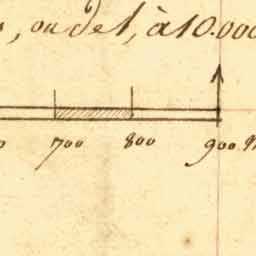 , ou de 1, à 10.000
700 800 900